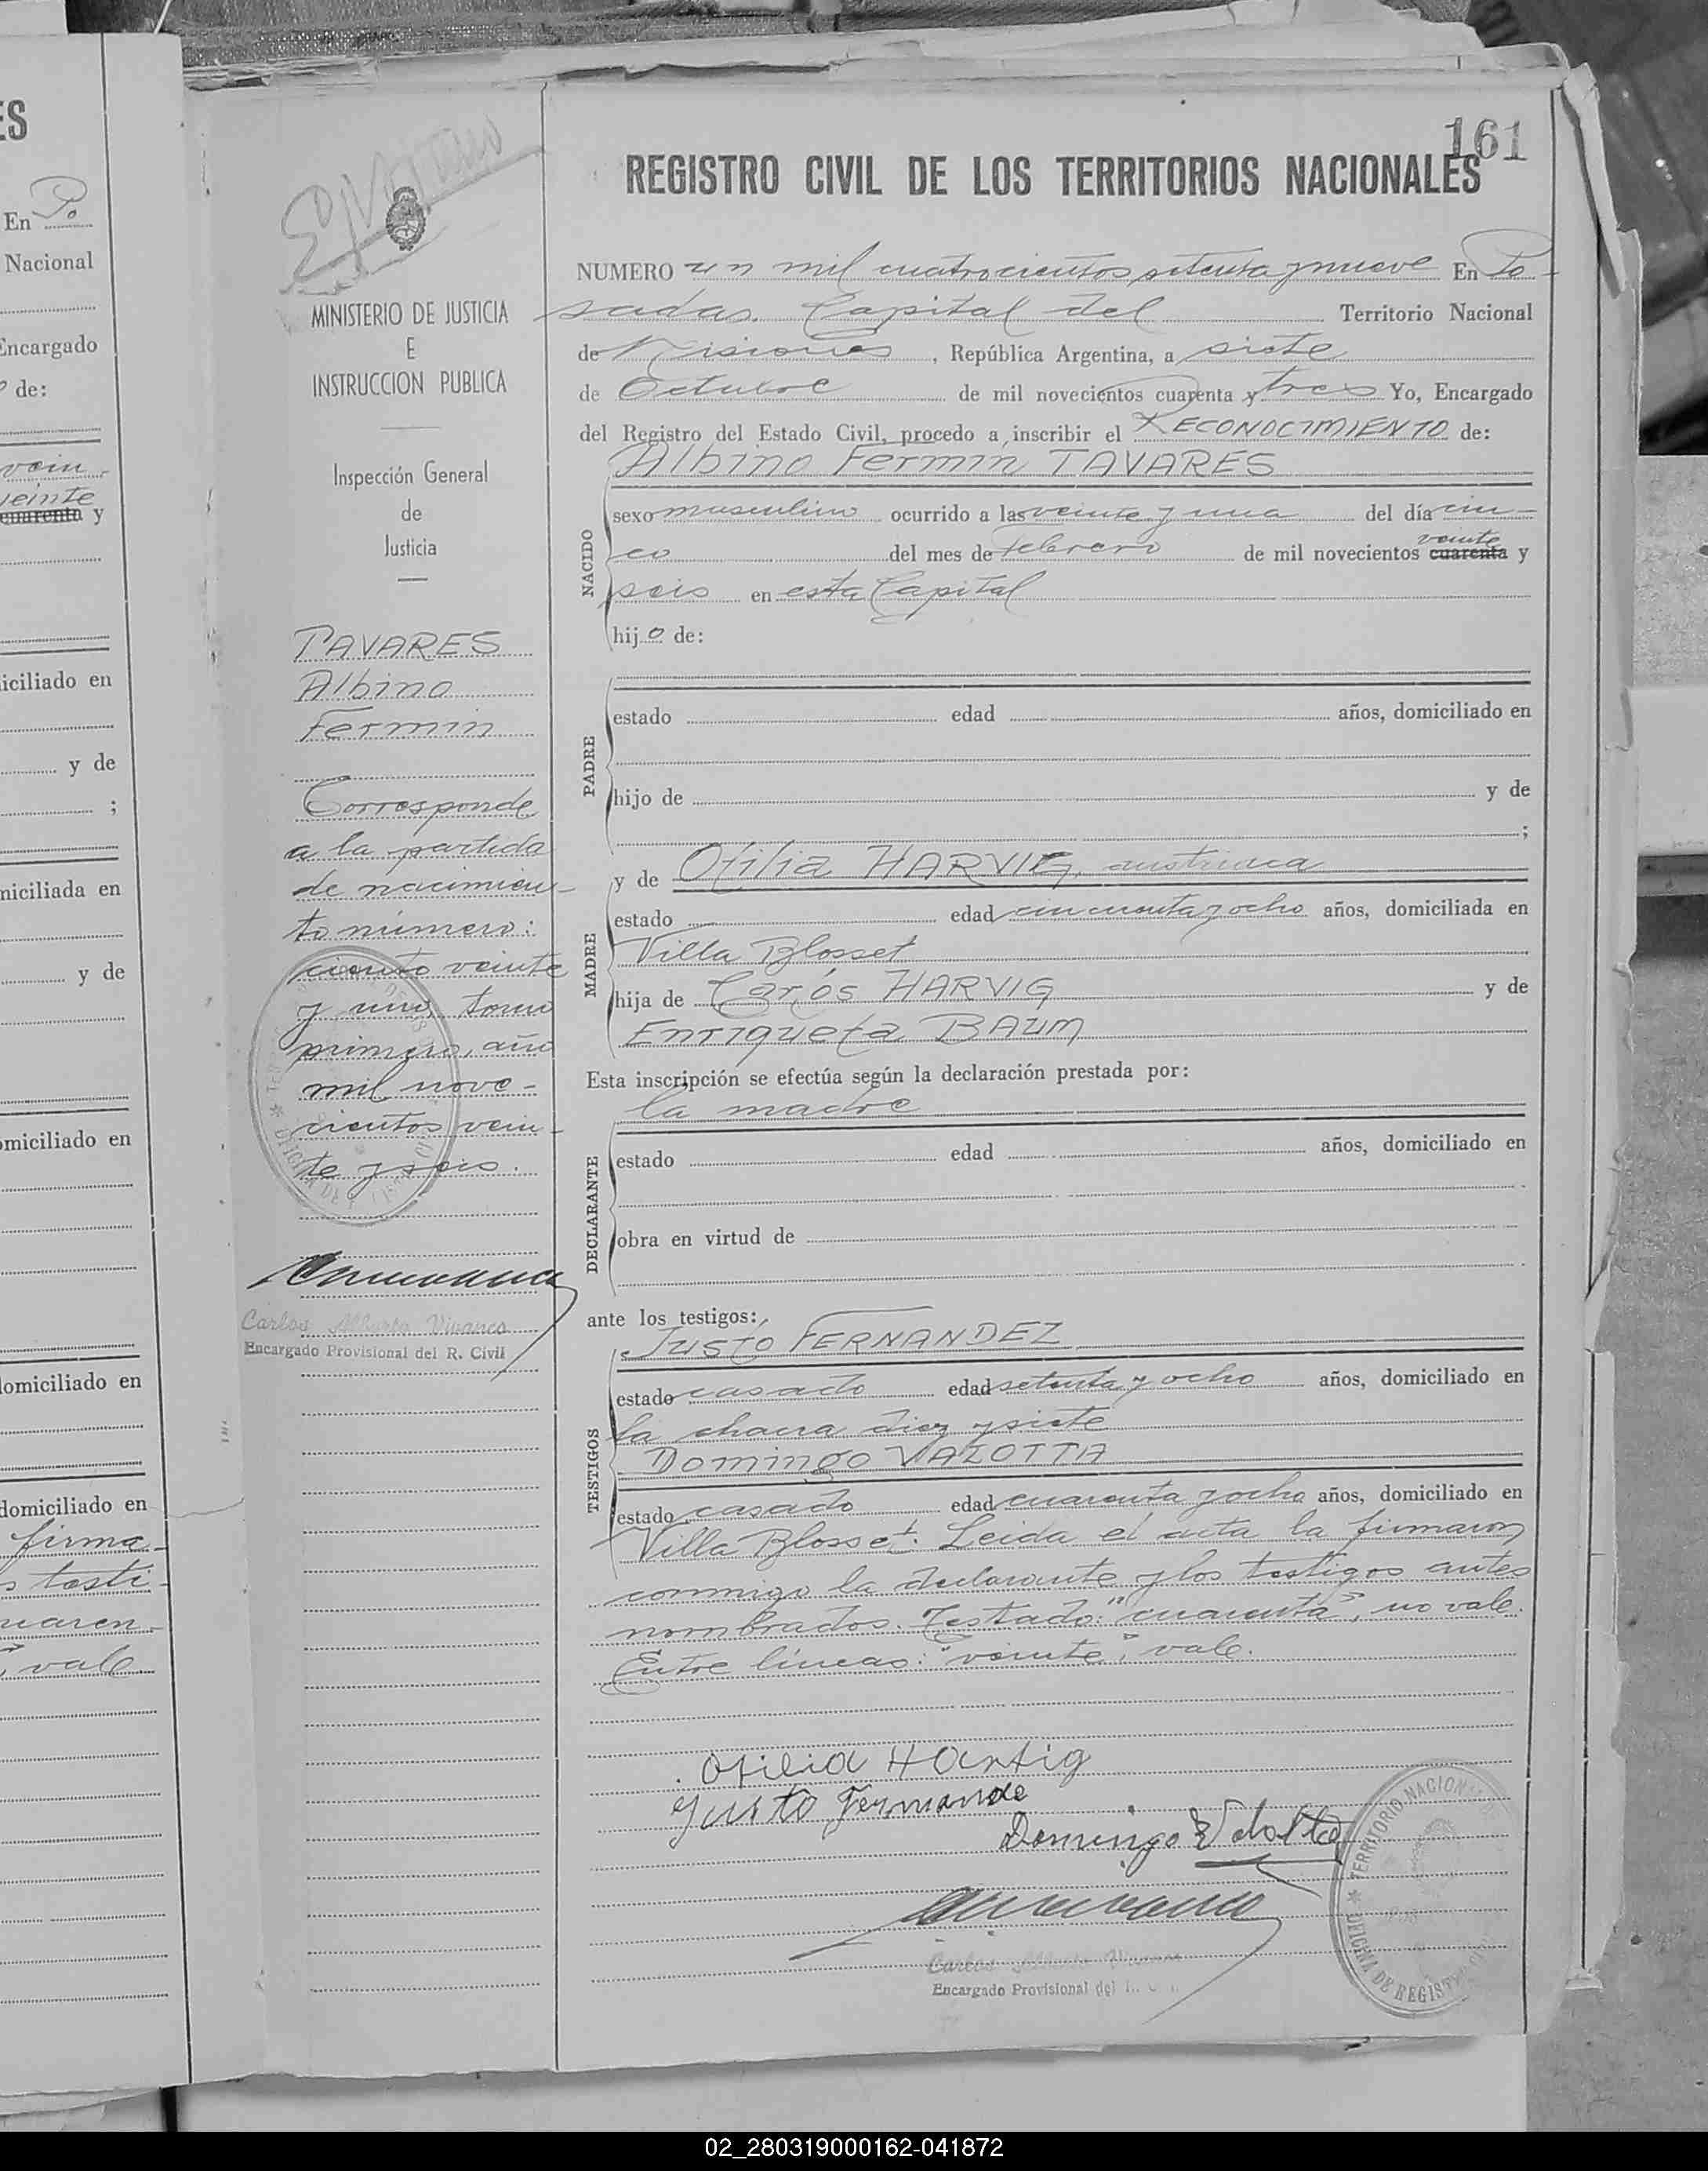 ES
En Po
Nacional
Encargado
o de:
vein
veinte
cuarenta y
iciliado en
y de
;
niciliada en
y de
omiciliado en
domiciliado en
domiciliado en
firma
s testi-
uaren-
, vale
161
REGISTRO CIVIL DE LOS TERRITORIOS NACIONALES
MINISTERIO DE JUSTICIA
E
INSTRUCCION PUBLICA
Inspección General
de
Justicia
TAVARES
Albino
Fermin
Corresponde
a la partida
de nacimien-
to número:
ciento veinte
y uno, tomo
primero, año
mil nove-
cientos vein-
te y seis.
Carlos Alberto Vivanco
Encargado Provisional del R. Civil
NUMERO un mil cuatrocientos setenta y nueve En Po-
sadas. Capital del Territorio Nacional
de Misiones, República Argentina, a siete
de Octubre de mil novecientos cuarenta y tres Yo, Encargado
del Registro del Estado Civil, procedo a inscribir el RECONOCIMIENTO de:
Albino Fermin TAVARES
NACIDO
sexo masculino ocurrido a las veinte y una del día cin-
co del mes de febrero de mil novecientos cuarenta veinte y
seis en esta Capital
hijo de:
PADRE
estado edad años, domiciliado en
hijo de y de
;
MADRE
y de Otilia HARVIG, austriaca
estado edad cincuenta y ocho años, domiciliada en
Villa Blosset
hija de Carlos HARVIG y de
Enriqueta BAUM
Esta inscripción se efectúa según la declaración prestada por:
la madre
DECLARANTE
estado edad años, domiciliado en
obra en virtud de
ante los testigos:
TESTIGOS
Justo FERNANDEZ
estado casado edad setenta y ocho años, domiciliado en
la chacra diez y siete
Domingo VALOTTA
estado casado edad cuarenta y ocho años, domiciliado en
Villa Blosset. Leida el acta la firmaron
conmigo la declarante y los testigos antes
nombrados. Testado: "cuarenta", no vale.
Entre líneas: "veinte", vale.
Otilia Hartig
Justo Fernande
Domingo Valotta
Carlos Alberto Vivanco
Encargado Provisional del R. C
TERRITORIO NACIONAL
OFICINA DE REGISTRO
02_280319000162-041872